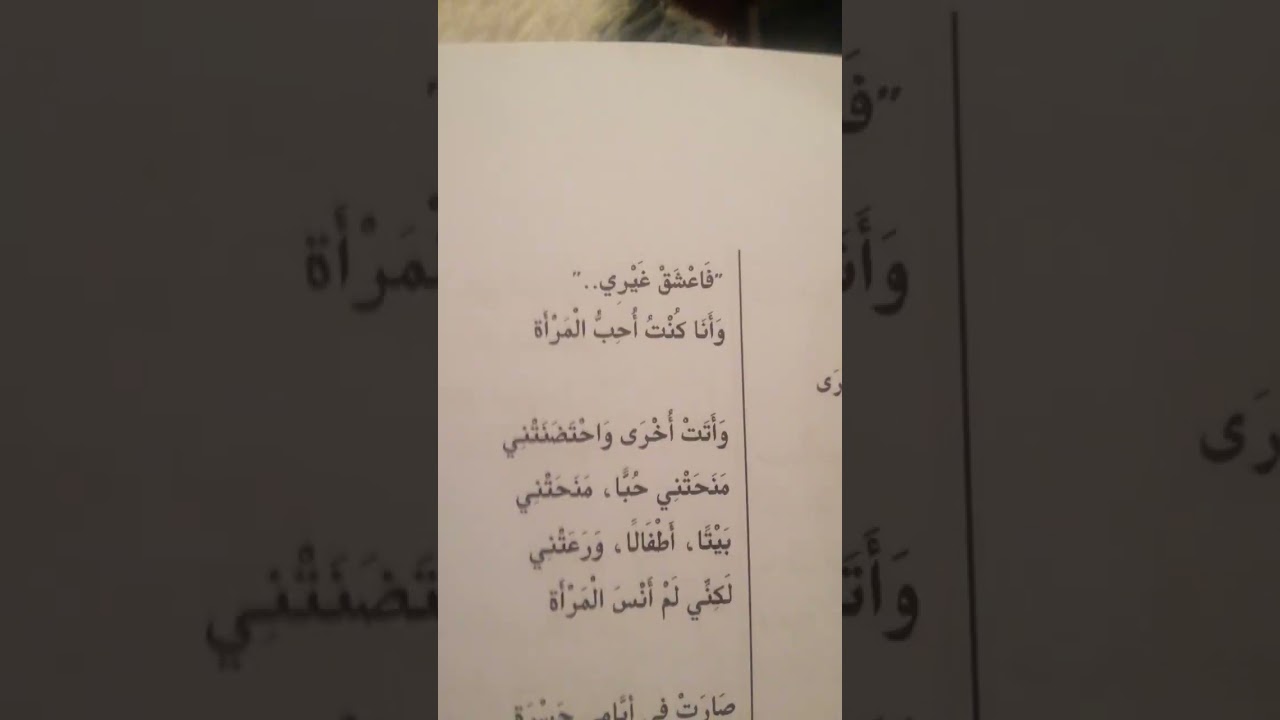 "فَاعْشَقْ غَيْرِي.."
وَأَنَا كُنْتُ أُحِبُّ الْمَرْأَة
وَأَتَتْ أُخْرَى وَاحْتَضَنَتْنِي
مَنَحَتْنِي حُبًّا، مَنَحَتْنِي
بَيْتًا، أَطْفَالًا، وَرَعَتْنِي
لَكِنِّي لَمْ أَنْسَ الْمَرْأَة
صَارَتْ فِي أَيَّامِي حَسْرَة